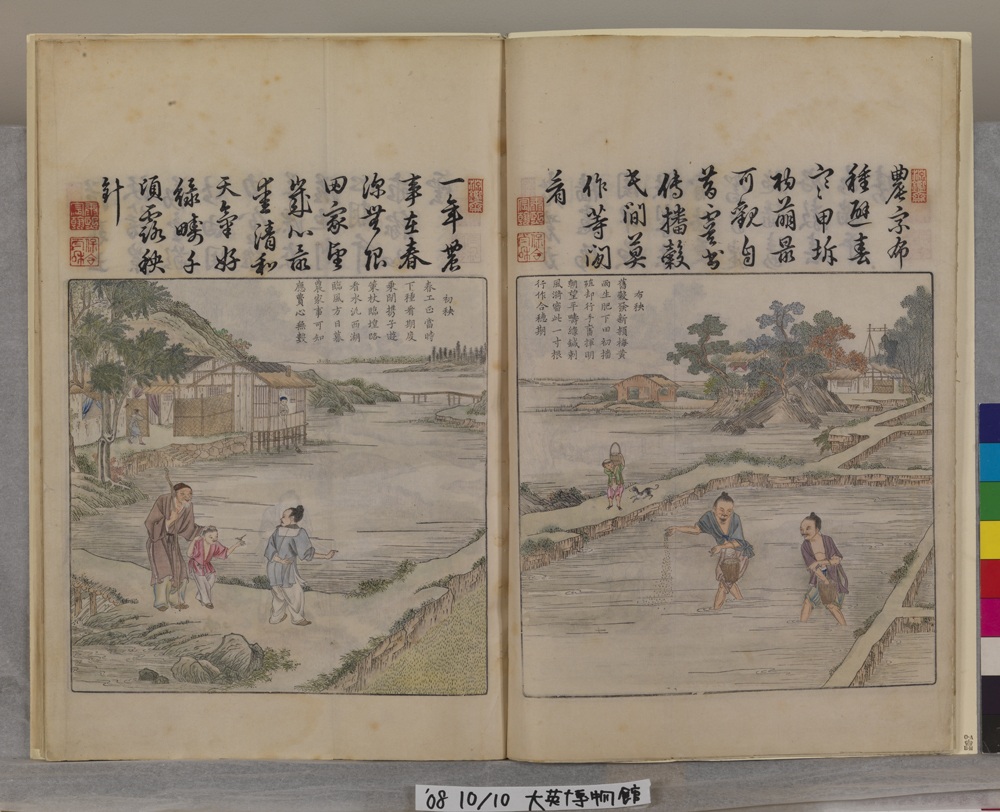 農家布
種避春
寒甲坼
初萌最
可觀自
昔虞書
傳播穀
民間莫
作等閒
看
布秧
舊穀發新穎梅黃
雨生肥下田初播
殖却行手奮揮明
朝望平疇綠鍼刺
風漪審此一寸根
行作合穗期
一年農
事在春
深無限
田家望
歲心最
愛清和
天氣好
綠疇千
頃露秧
針
初秧
春工正當時
下種看期度
乘閒携子遊
策杖臨堤路
看水汎兩湖
臨風方日暮
農家事可知
應費心無數
'08 10/10 大英博物館